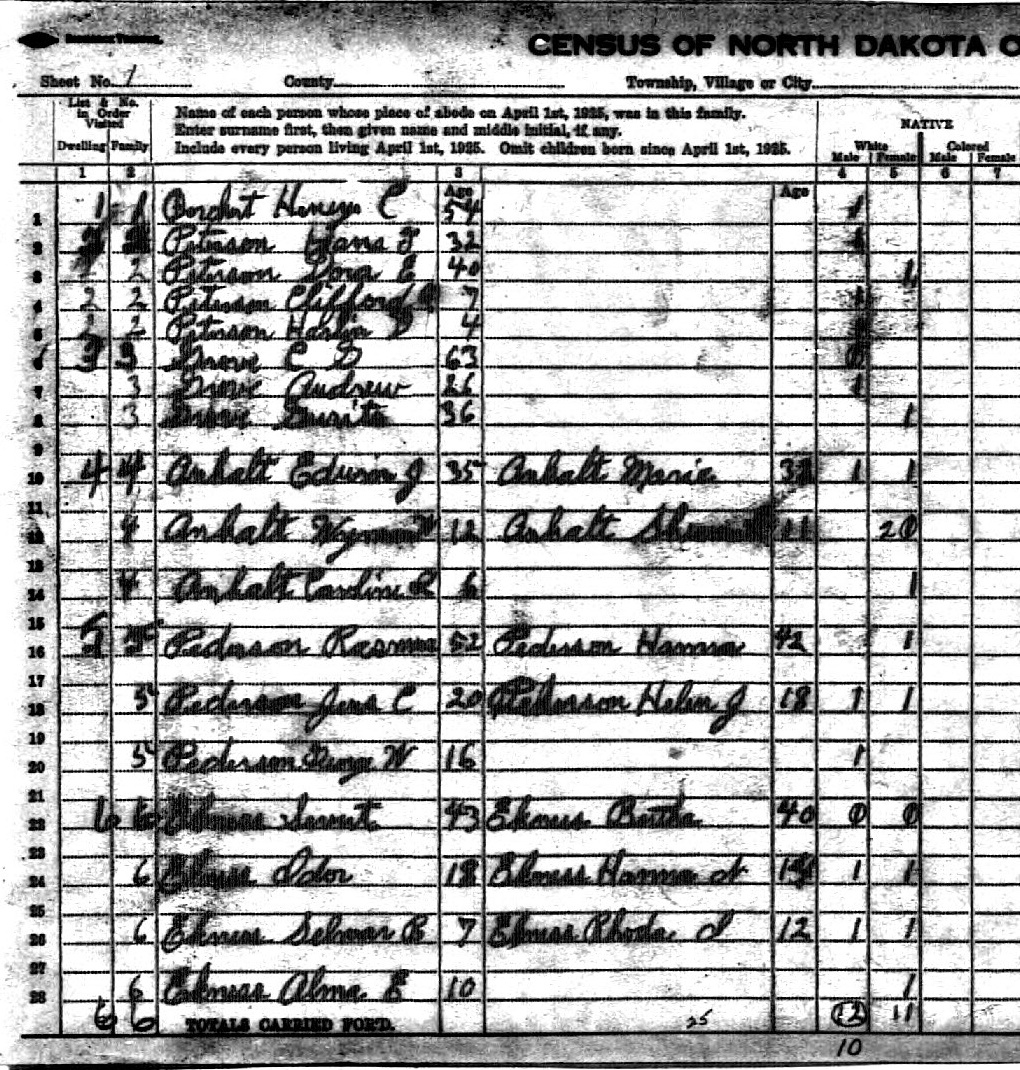 CENSUS OF NORTH DAKOTA O
Sheet No. 1 County Township, Village or City
List & No. in Order Visited
Name of each person whose place of abode on April 1st, 1925, was in this family.
Enter surname first, then given name and middle initial, if any.
Include every person living April 1st, 1925. Omit children born since April 1st, 1925.
NATIVE
White Colored
Dwelling Family Male Female Male Female
1 2 3 4 5 6 7
Age Age
1 1 1 C 54 1
2 Peterson Hans F 32 1
3 2 Peterson E 40 1
4 2 2 Peterson Clifford 7 1
5 2 2 Peterson 4
6 3 3 C 63
7 3 Andrew 26 1
8 3 36 1
9
10 4 4 Anhalt Edwin J 35 Anhalt Marie 1 1
11
12 4 Anhalt 12 Anhalt 11 2
13
14 4 Anhalt Caroline R 6 1
15
16 5 5 Pederson Rasmus 52 Pederson Hanna 42 1
17
18 5 Pederson Jens C 20 Pederson Helen J 18 1 1
19
20 5 Pederson W 16 1
21
22 6 6 Ekness 43 Ekness Bertha 40 0 0
23
24 6 Ekness Odor 18 Ekness Hanna 1 1
25
26 6 Ekness Selmar R 7 Ekness Rhoda I 12 1 1
27
28 6 Ekness Alma E 10 1
6 6 TOTALS CARRIED FOR'D. 25 12 11
10